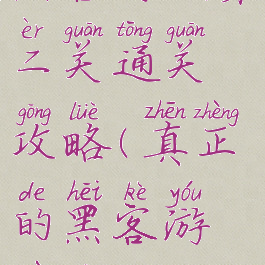 èr guān tōng guān
二关通关
gōng lüè zhēn zhèng
攻略(真正
de hēi kè yóu
的黑客游